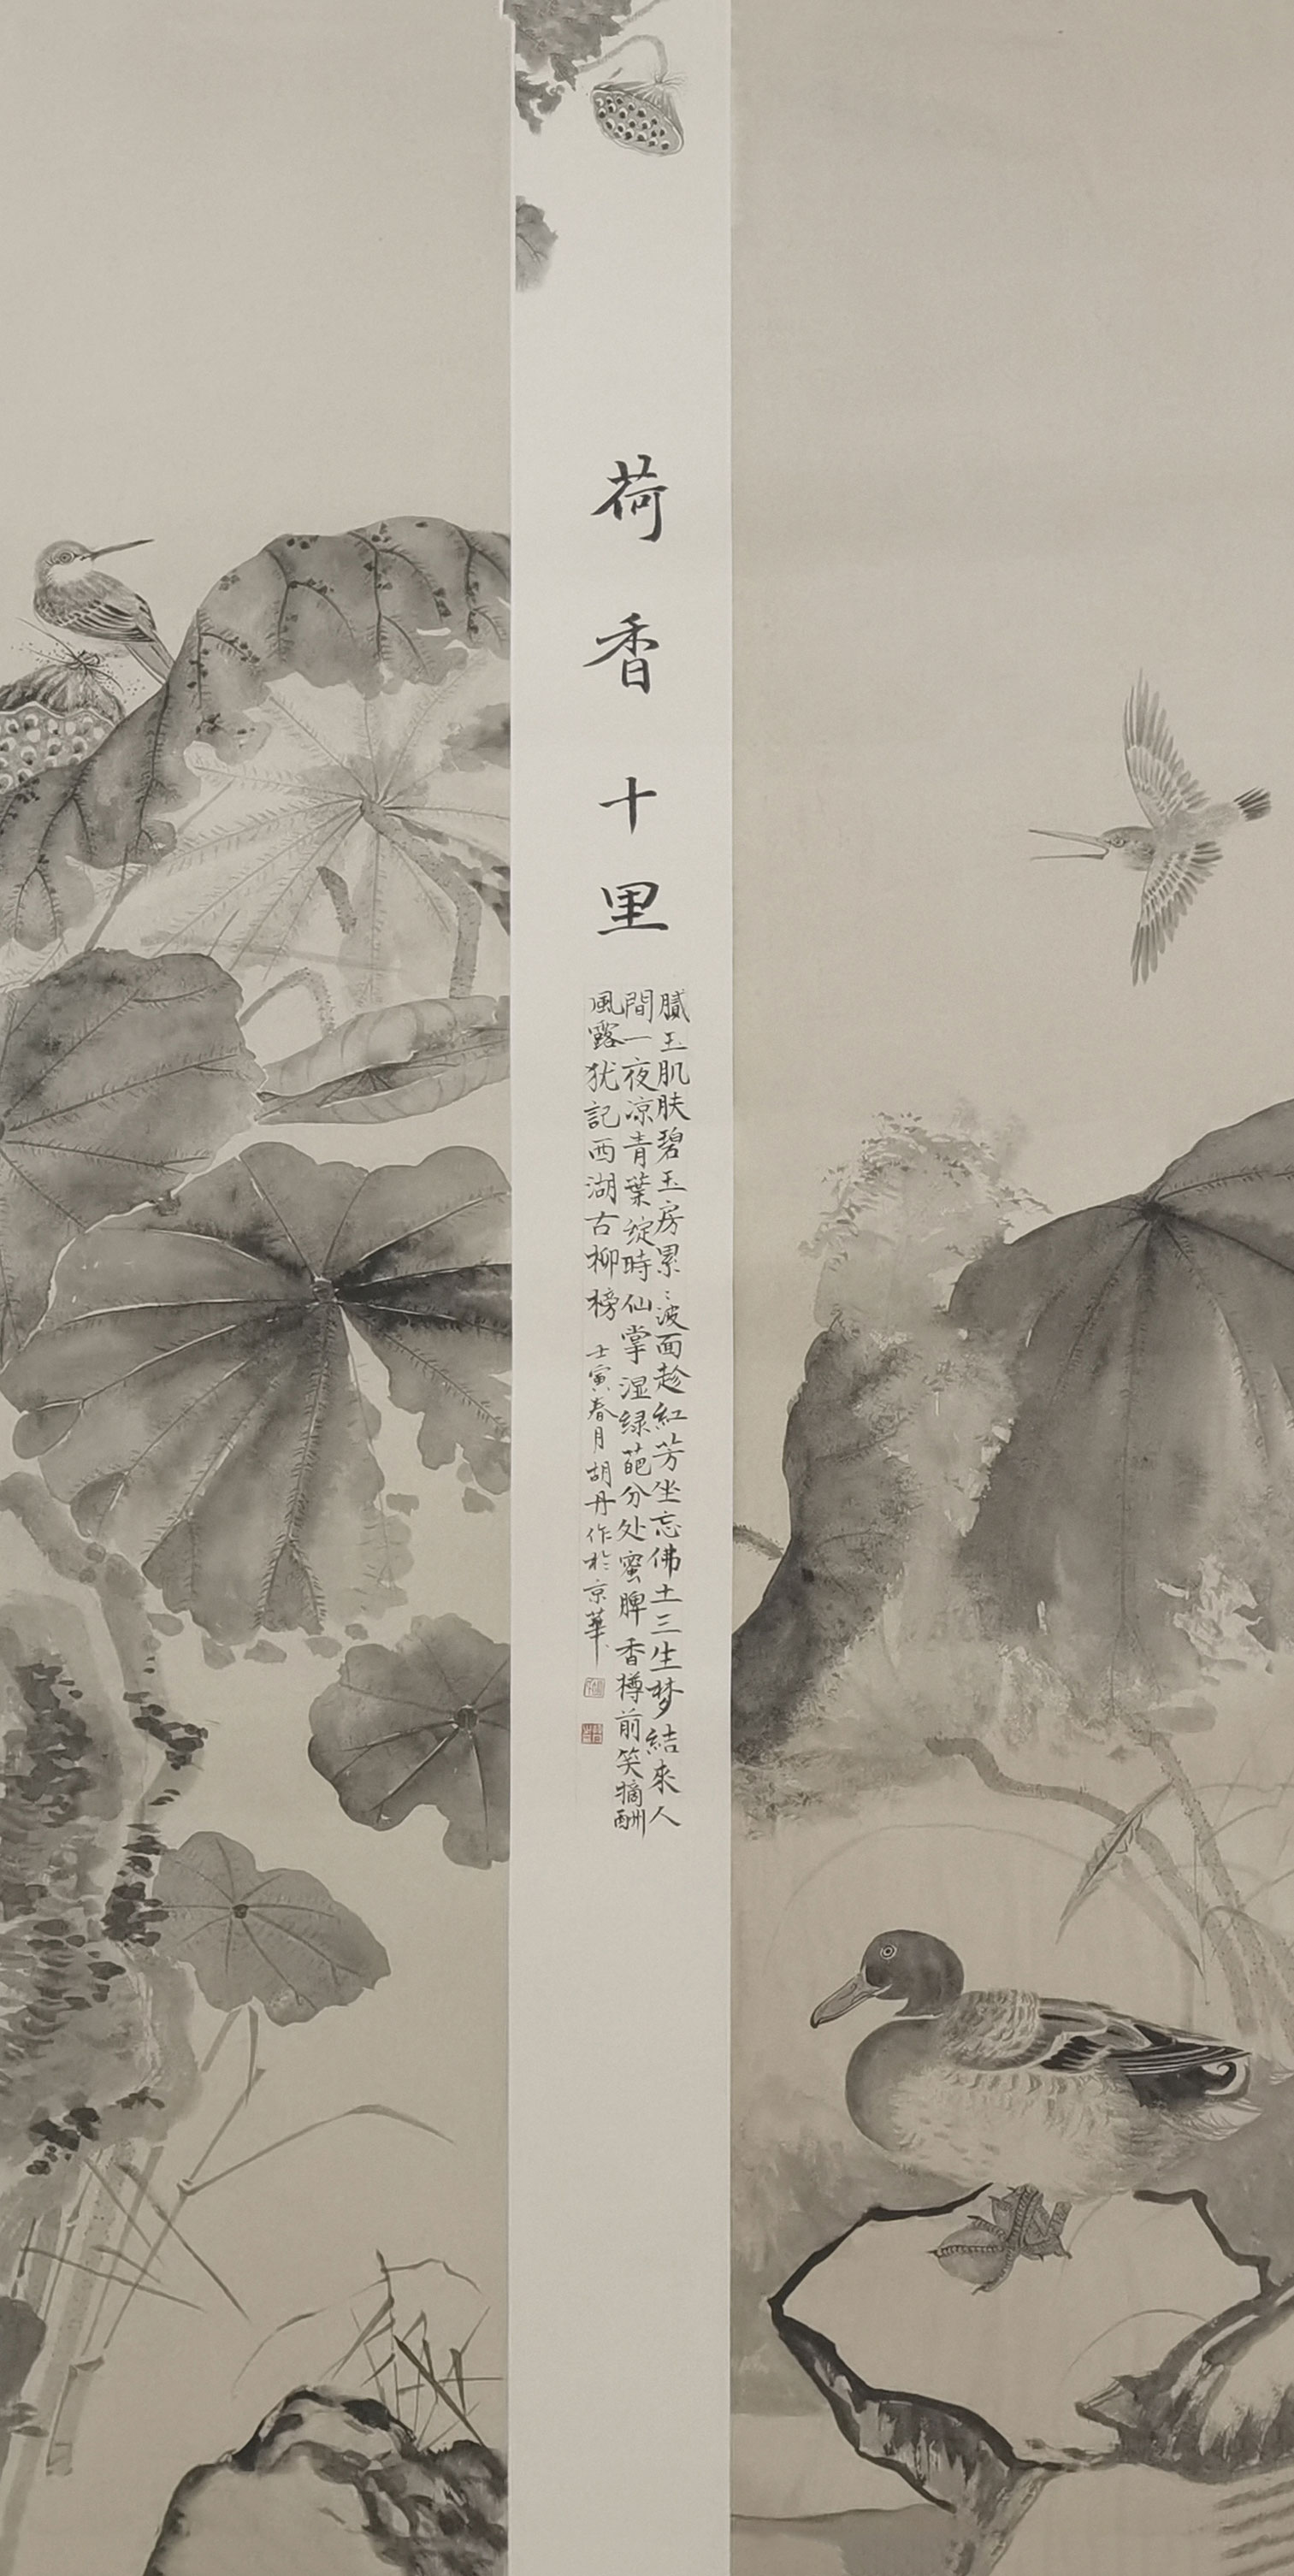 荷香十里
膩玉肌肤碧玉房累〻波面趁紅芳坐忘佛土三生梦結來人
間一夜凉青葉绽時仙掌湿绿葩分处蜜脾香樽前笑摘酬
風露犹記西湖古柳榜
壬寅春月胡丹作於京華